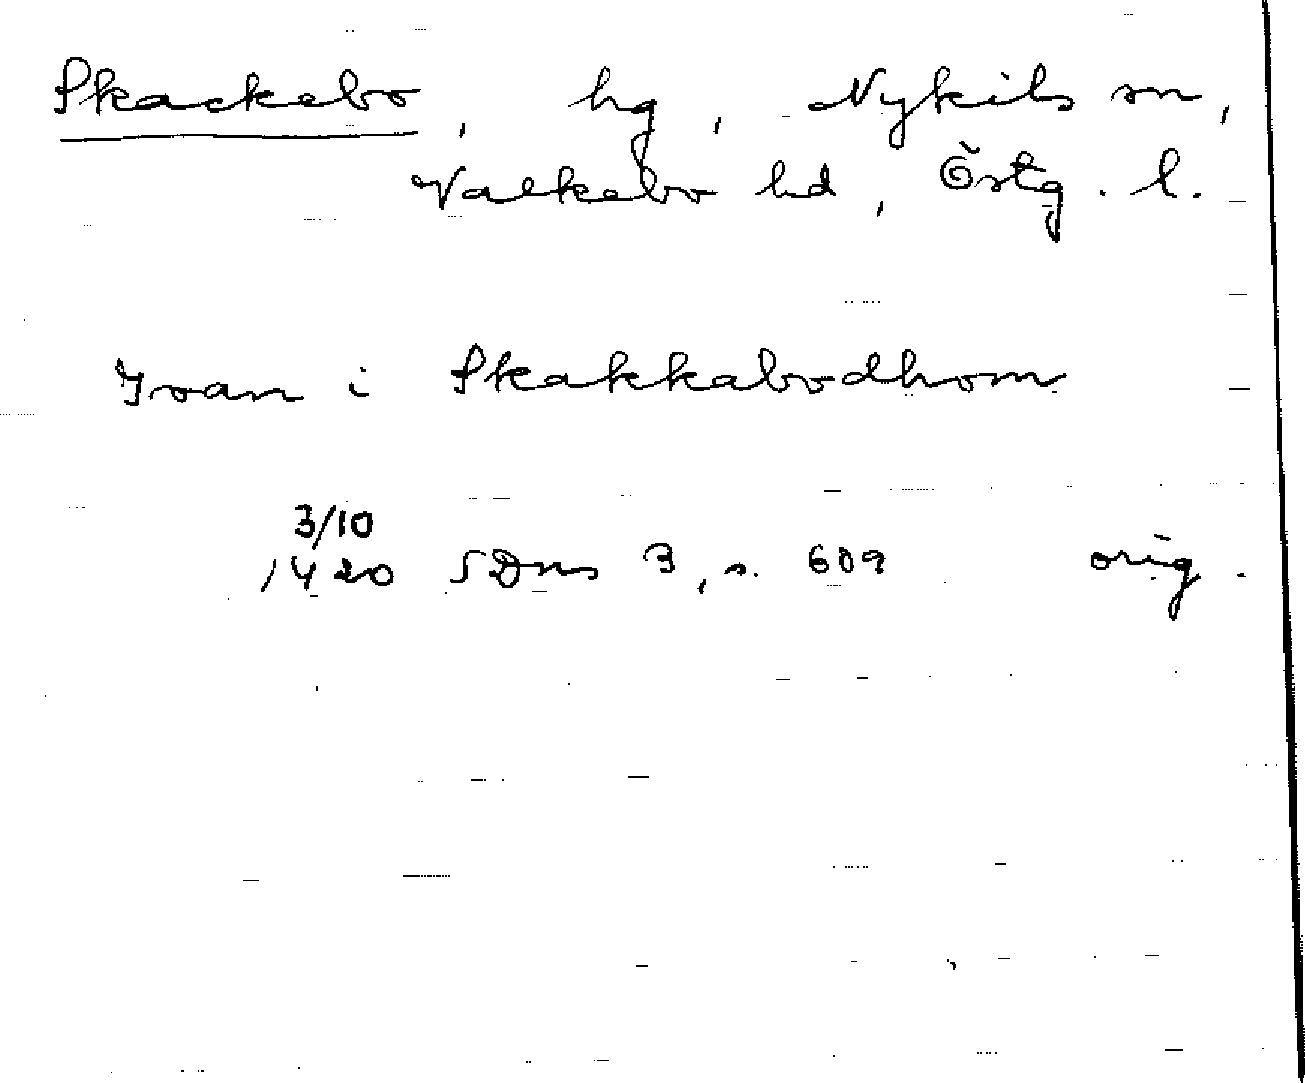 Skackebo, hg, Nykils sn,
Valkebo hd, Östg. l.
Ioan i Skakkabodhom
3/10
1420 SDns 3, s. 609 orig.